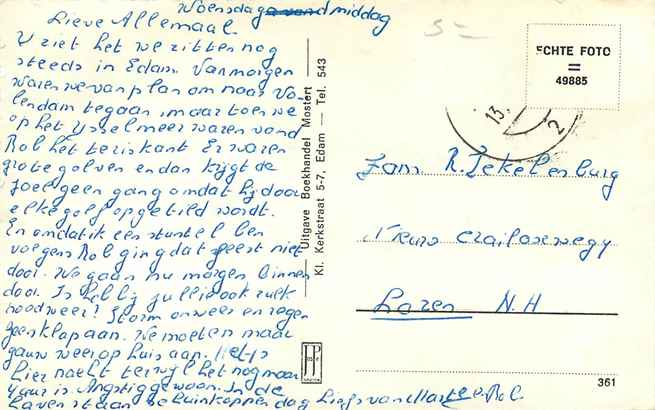 Woensdag avond middag
Lieve Allemaal.
U ziet het we zitten nog
steeds in Edam. Vanmorgen
waren we van plan om naar Vo-
lendam te gaan, maar toen we
op het IJsselmeer waren vond
Rol het te riskant. Er waren
grote golven en dan krijgt de
joel geen gang omdat hij door
elke golf opgetild wordt.
En omdat ik een stuntel ben
volgens Rol ging dat feest niet
door. We gaan nu morgen binnen
door. Is het bij jullie ook zulk
noodweer? Storm onweer en regen
geen klap aan. We moeten maar
gauw weer op huis aan. Het is
hier nacht terwijl het nog maar
4 uur is. Angstig gewoon. In de
haven staan de
dag Liefs van Marte e. Rol.
Uitgave Boekhandel Mostert
Kl. Kerkstraat 5-7, Edam — Tel. 543
ECHTE FOTO
49885
13.
2
Fam R. Tekelenburg
Crailoseweg 4
Laren N.H
361